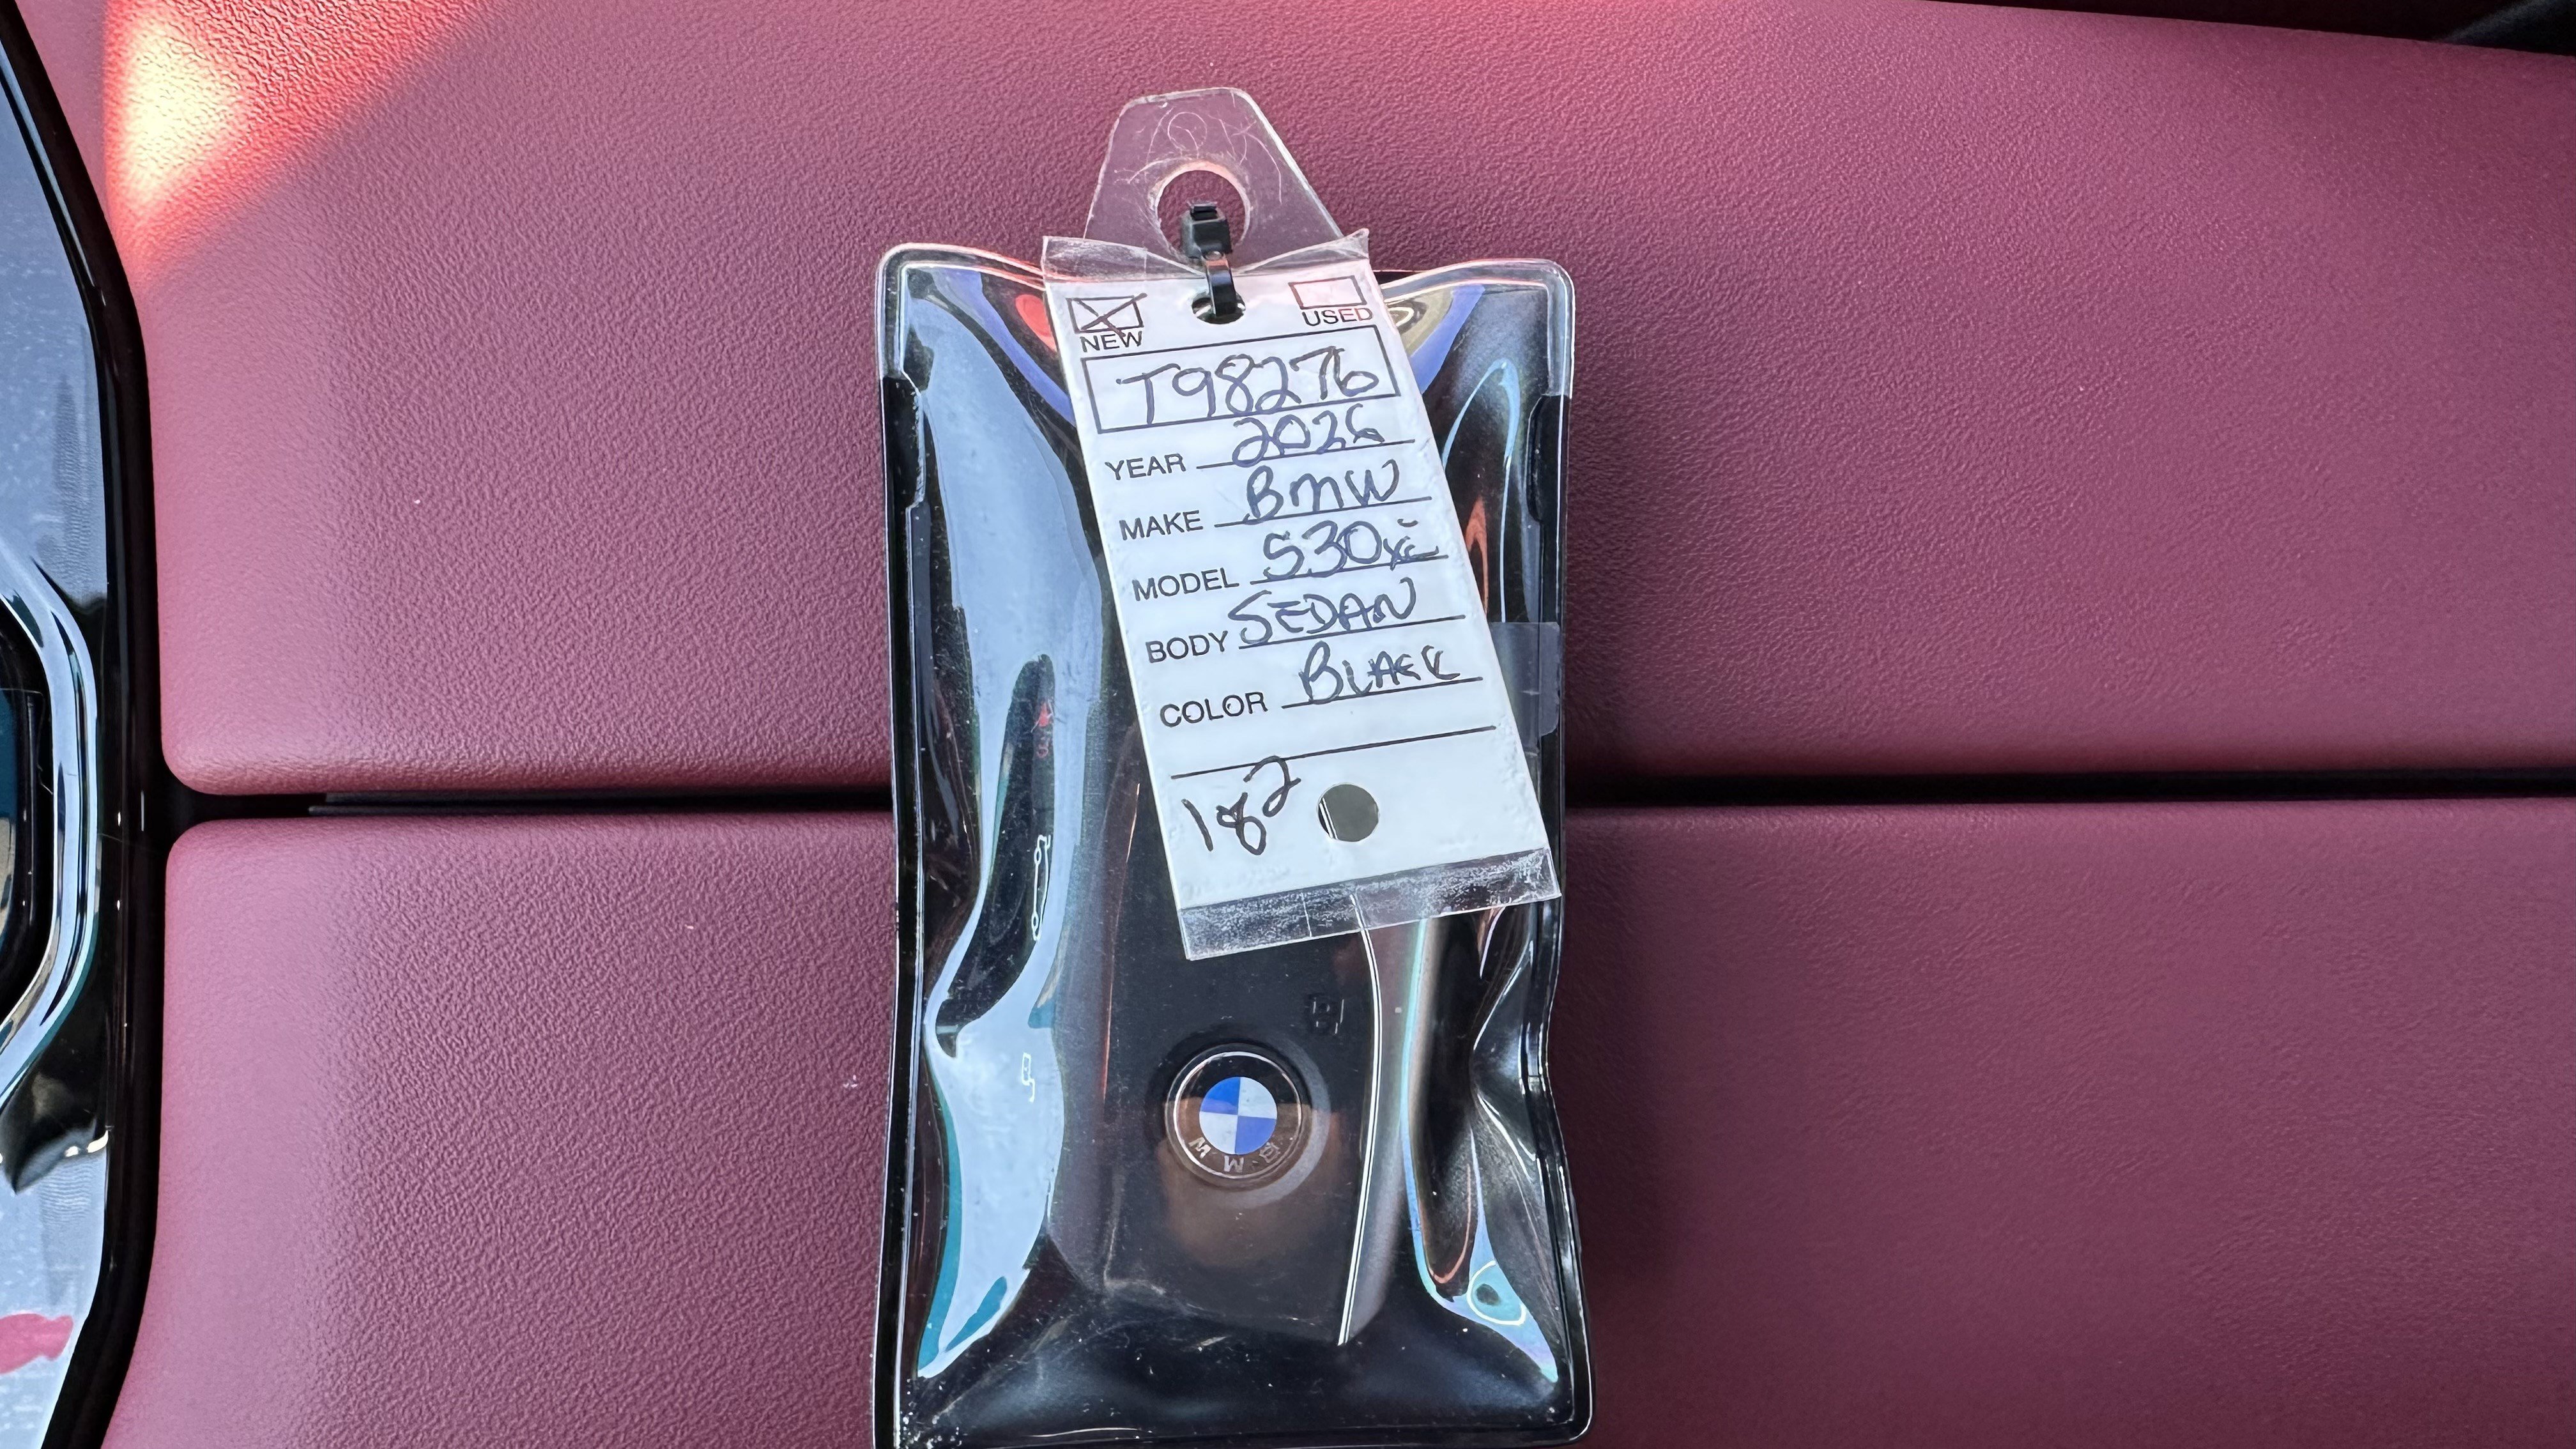 NEW USED
T98276
YEAR 2026
MAKE BMW
MODEL 530xi
BODY SEDAN
COLOR BLACK
182
BMW